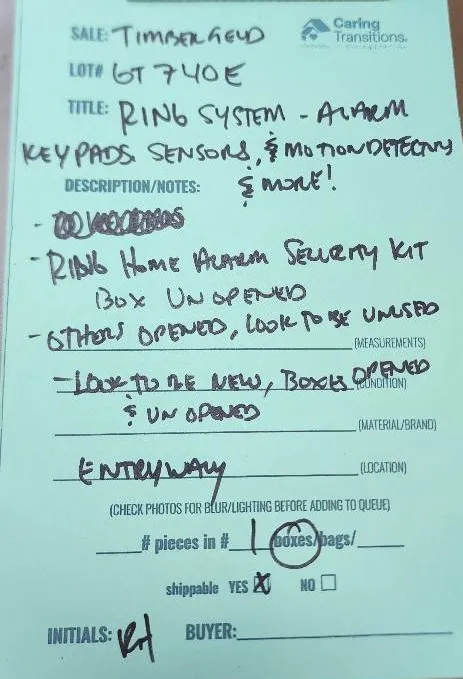 SALE: TIMBERFIELD
Caring Transitions.
LOT# GT 740E
TITLE: RING SYSTEM - ALARM
KEYPADS, SENSORS, & MOTION DETECTORS
DESCRIPTION/NOTES: & MORE!
- RING HOME ALARM SECURITY KIT
BOX UNOPENED
- OTHERS OPENED, LOOK TO BE UNUSED
(MEASUREMENTS)
- LOOK TO BE NEW, BOXES OPENED
(CONDITION)
& UNOPENED
(MATERIAL/BRAND)
ENTRYWAY (LOCATION)
(CHECK PHOTOS FOR BLUR/LIGHTING BEFORE ADDING TO QUEUE)
# pieces in # 1 boxes/bags/
shippable YES X NO
INITIALS: BUYER: